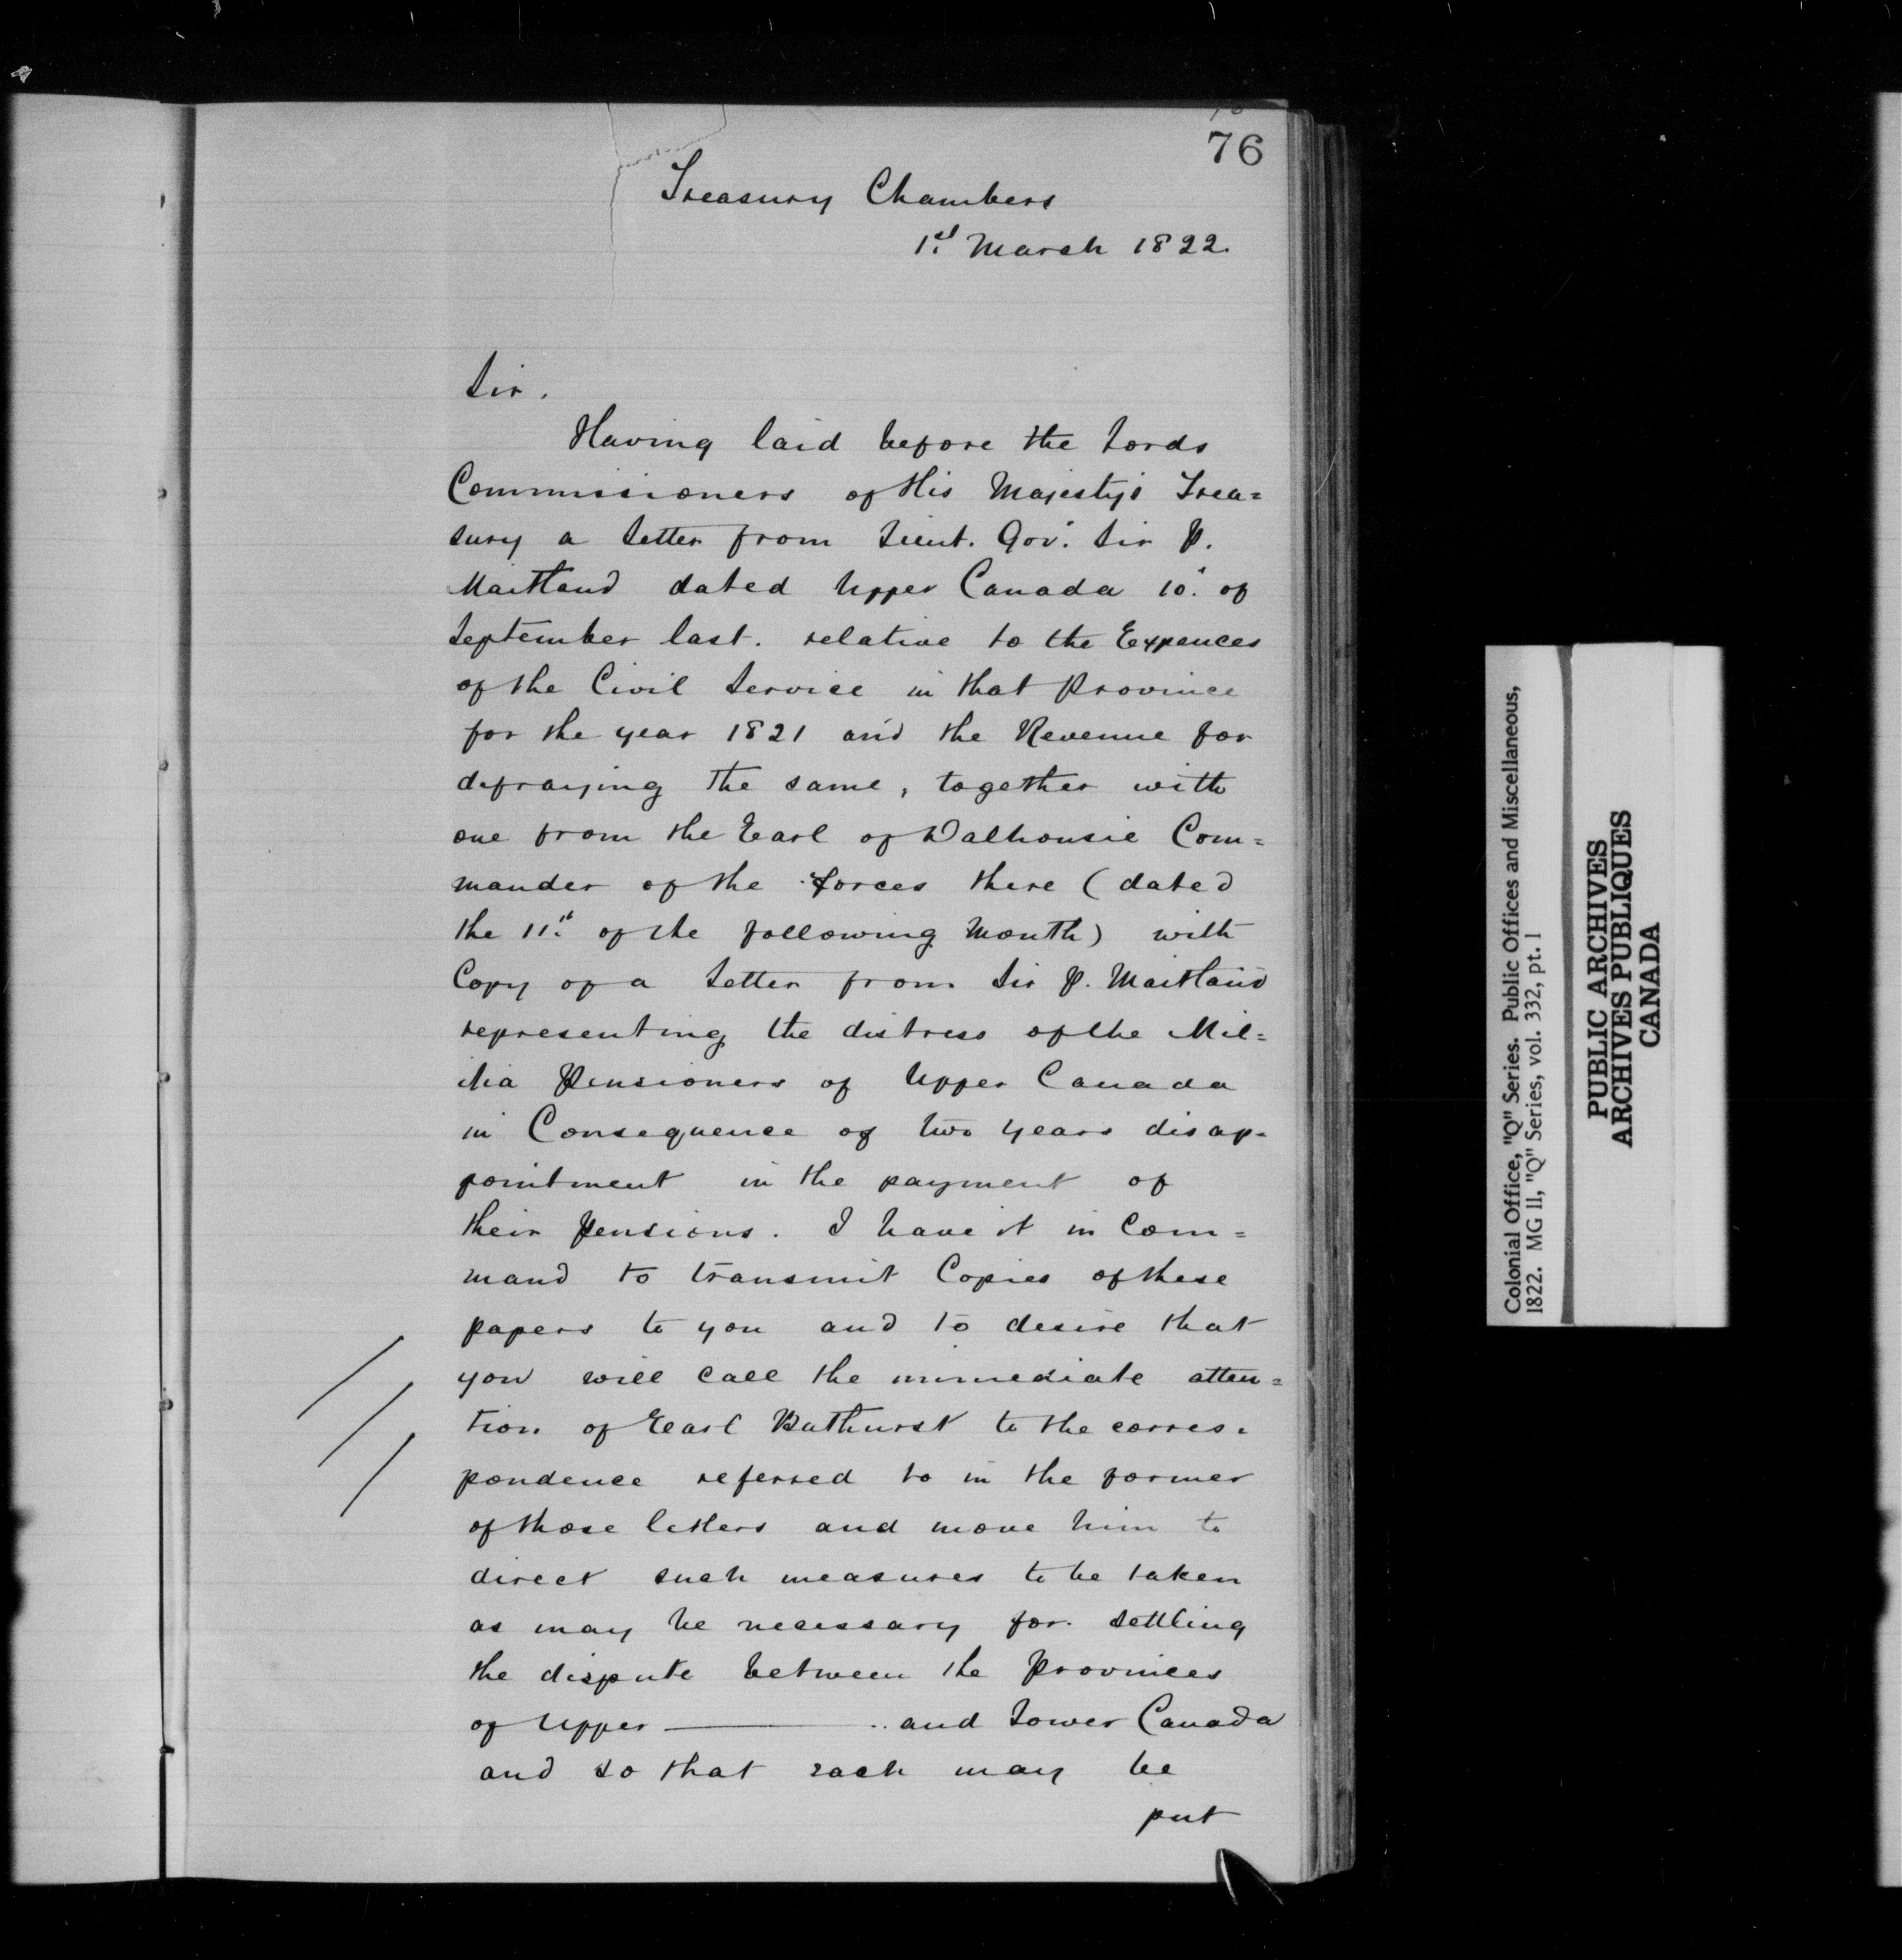 76
Treasury Chambers
1st March 1822.
Sir.
Having laid before the Lords
Commissioners of His Majesty's Trea=
sury a Letter from Lieut. Gov.r Sir P.
Maitland dated Upper Canada 10.th of
September last. relative to the Expences
of the Civil Service in that Province
for the year 1821 and the Revenue for
defraying the same, together with
one from the Earl of Dalhousie Com=
mander of the forces there (dated
the 11.th of the following Month) with
Copy of a Letter from Sir P. Maitland
representing the distress of the Mil=
itia Pensioners of Upper Canada
in Consequence of two years disap=
pointment in the payment of
their Pensions. I have it in Com=
mand to transmit Copies of these
papers to you and to desire that
you will call the immediate atten=
tion of Earl Bathurst to the corres=
pondence referred to in the former
of those letters and move him to
direct such measures to be taken
as may be necessary for settling
the dispute between the Provinces
of Upper — and Lower Canada
and so that each may be
put
Colonial Office, "Q" Series. Public Offices and Miscellaneous,
1822. MG 11, "Q" Series, vol. 332, pt. 1
PUBLIC ARCHIVES
ARCHIVES PUBLIQUES
CANADA